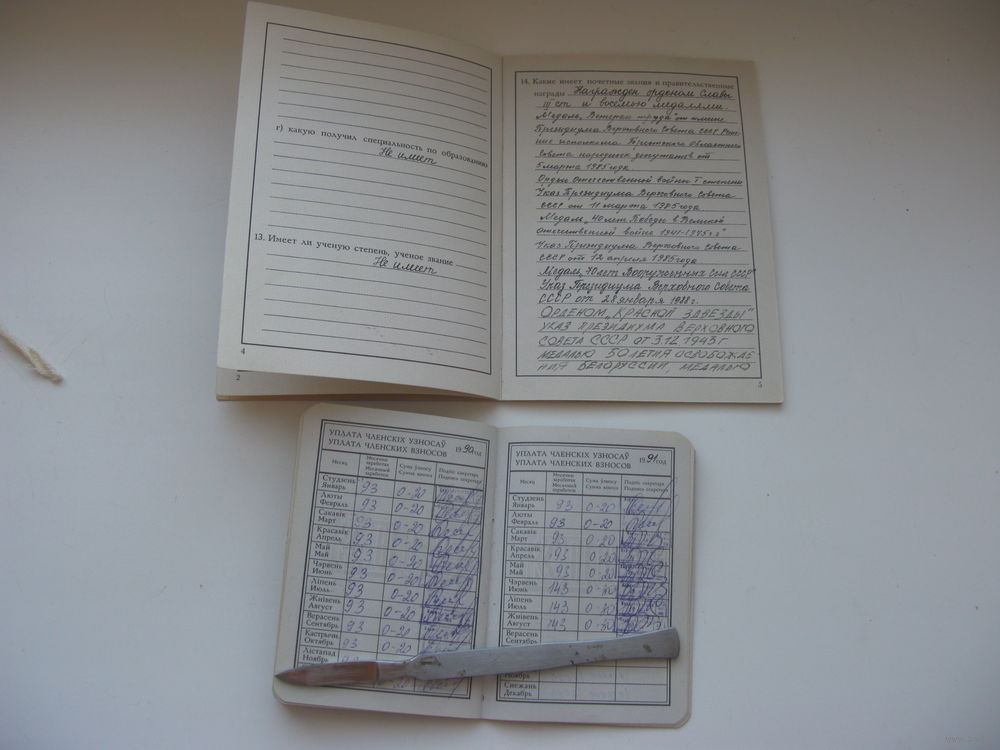 г) какую получил специальность по образованию
Не имеет
13. Имеет ли ученую степень, ученое звание
Не имеет
4
2
14. Какие имеет почетные звания и правительственные
награды Награжден орденом Славы
III ст и восемью медалями.
Медаль „Ветеран труда"
Президиума Верховного Совета СССР
исполкома Областного
Совета народных депутатов от
5 марта 1985 года
Орден Отечественной войны I степени
Указ Президиума Верховного Совета
СССР от 11 марта 1985 года
Медаль „40 лет Победы в Великой
отечественной войне 1941-1945 г.г"
Указ Президиума Верховного Совета
СССР от 12 апреля 1985 года
Медаль „70 лет Вооруженных Сил СССР"
Указ Президиума Верховного Совета
СССР от 28 января 1988 г.
ОРДЕНОМ „КРАСНОЙ ЗВЕЗДЫ"
УКАЗ ПРЕЗИДИУМА ВЕРХОВНОГО
СОВЕТА СССР ОТ 3.12 1943 г
МЕДАЛЬЮ 50 ЛЕТИЯ ОСВОБОЖДЕ-
НИЯ БЕЛОРУССИИ, МЕДАЛЬЮ
5
УПЛАТА ЧЛЕНСКІХ УЗНОСАЎ
УПЛАТА ЧЛЕНСКИХ ВЗНОСОВ
1990 год
Месяц
Месячны заработак
Месячный заработок
Сума ўзносу
Сумма взноса
Подпіс сакратара
Подпись секретаря
Студзень
Январь 93 0-20
Люты
Февраль 93 0-20
Сакавік
Март 93 0-20
Красавік
Апрель 93 0-20
Май
Май 93 0-20
Чэрвень
Июнь 93 0-20
Ліпень
Июль 93 0-20
Жнівень
Август 93 0-20
Верасень
Сентябрь 93 0-20
Кастрычн.
Октябрь 93 0-20
Лістапад
Ноябрь
УПЛАТА ЧЛЕНСКІХ УЗНОСАЎ
УПЛАТА ЧЛЕНСКИХ ВЗНОСОВ
1991 год
Месяц
Месячны заработак
Месячный заработок
Сума ўзносу
Сумма взноса
Подпіс сакратара
Подпись секретаря
Студзень
Январь 93 0-20
Люты
Февраль 93 0-20
Сакавік
Март 93 0-20
Красавік
Апрель 93 0-20
Май
Май 93 0-20
Чэрвень
Июнь 143 0-20
Ліпень
Июль 143 0-20
Жнівень
Август 143 0-20
Верасень
Сентябрь
Ноябрь
Снежань
Декабрь